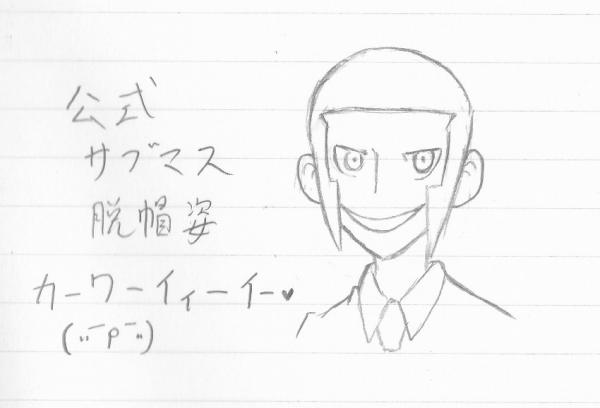 公式
サブマス
脱帽姿
カーワーイィーイー♥
(¨̄ρ¨̄)